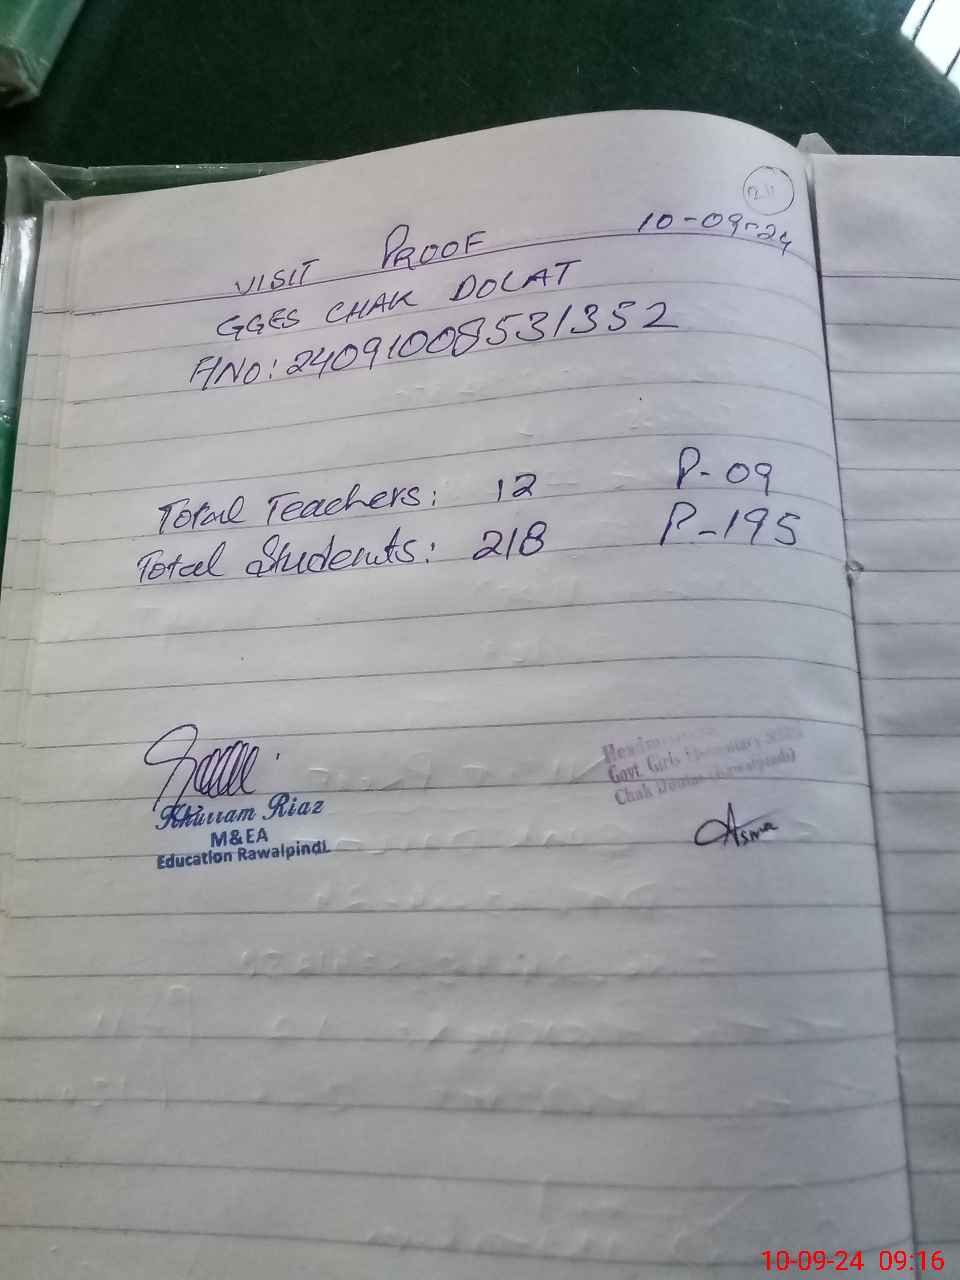 10-09-24
VISIT PROOF
GGES CHAK DOLAT
ANO: 24091008531352
Total Teachers: 12 P-09
Total Students: 218 P-195
Khurram Riaz
M&EA
Education Rawalpindi
Govt. Girls Elementary
Chak (Rawalpindi)
Asma
10-09-24 09:16